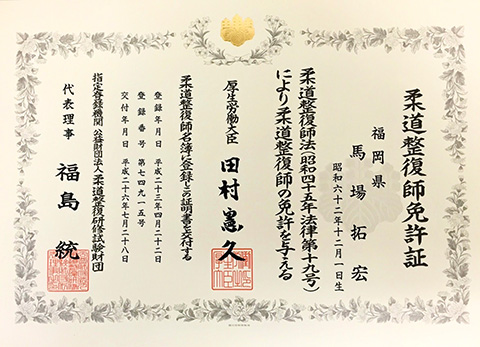 柔道整復師免許証
福岡県
馬場拓宏
昭和六十二年十二月一日生
柔道整復師法(昭和四十五年法律第十九号)
により柔道整復師の免許を与える
厚生労働大臣 田村憲久
柔道整復師名簿に登録しこの証明書を交付する
登録年月日 平成二十三年四月二十二日
登録番号 第七四九一五号
交付年月日 平成二十六年七月二十八日
指定登録機関 公益財団法人柔道整復研修試験財団
代表理事 福島統